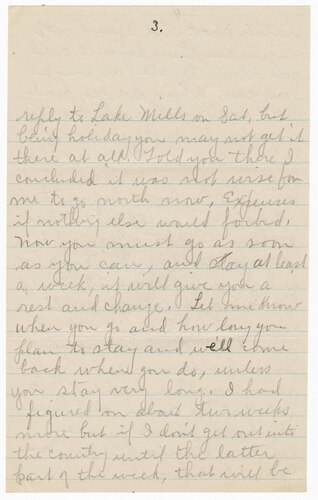 3.
reply to Lake Mills on Sat, but
being holiday you may not get it
there at all. Told you there I
concluded it was not wise for
me to go north now, Expenses
if nothing else would forbid.
Now you must go as soon
as you can, and stay at least
a week, it will give you a
rest and change. Let me know
when you go and how long you
plan to stay and we'll come
back when you do, unless
you stay very long. I had
figured on about two weeks
more but if I don't get out into
the country until the latter
part of the week, that will be